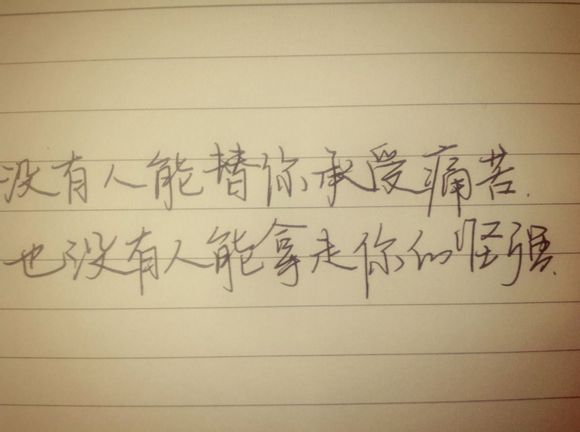 没有人能替你承受痛苦.
也没有人能拿走你的坚强.